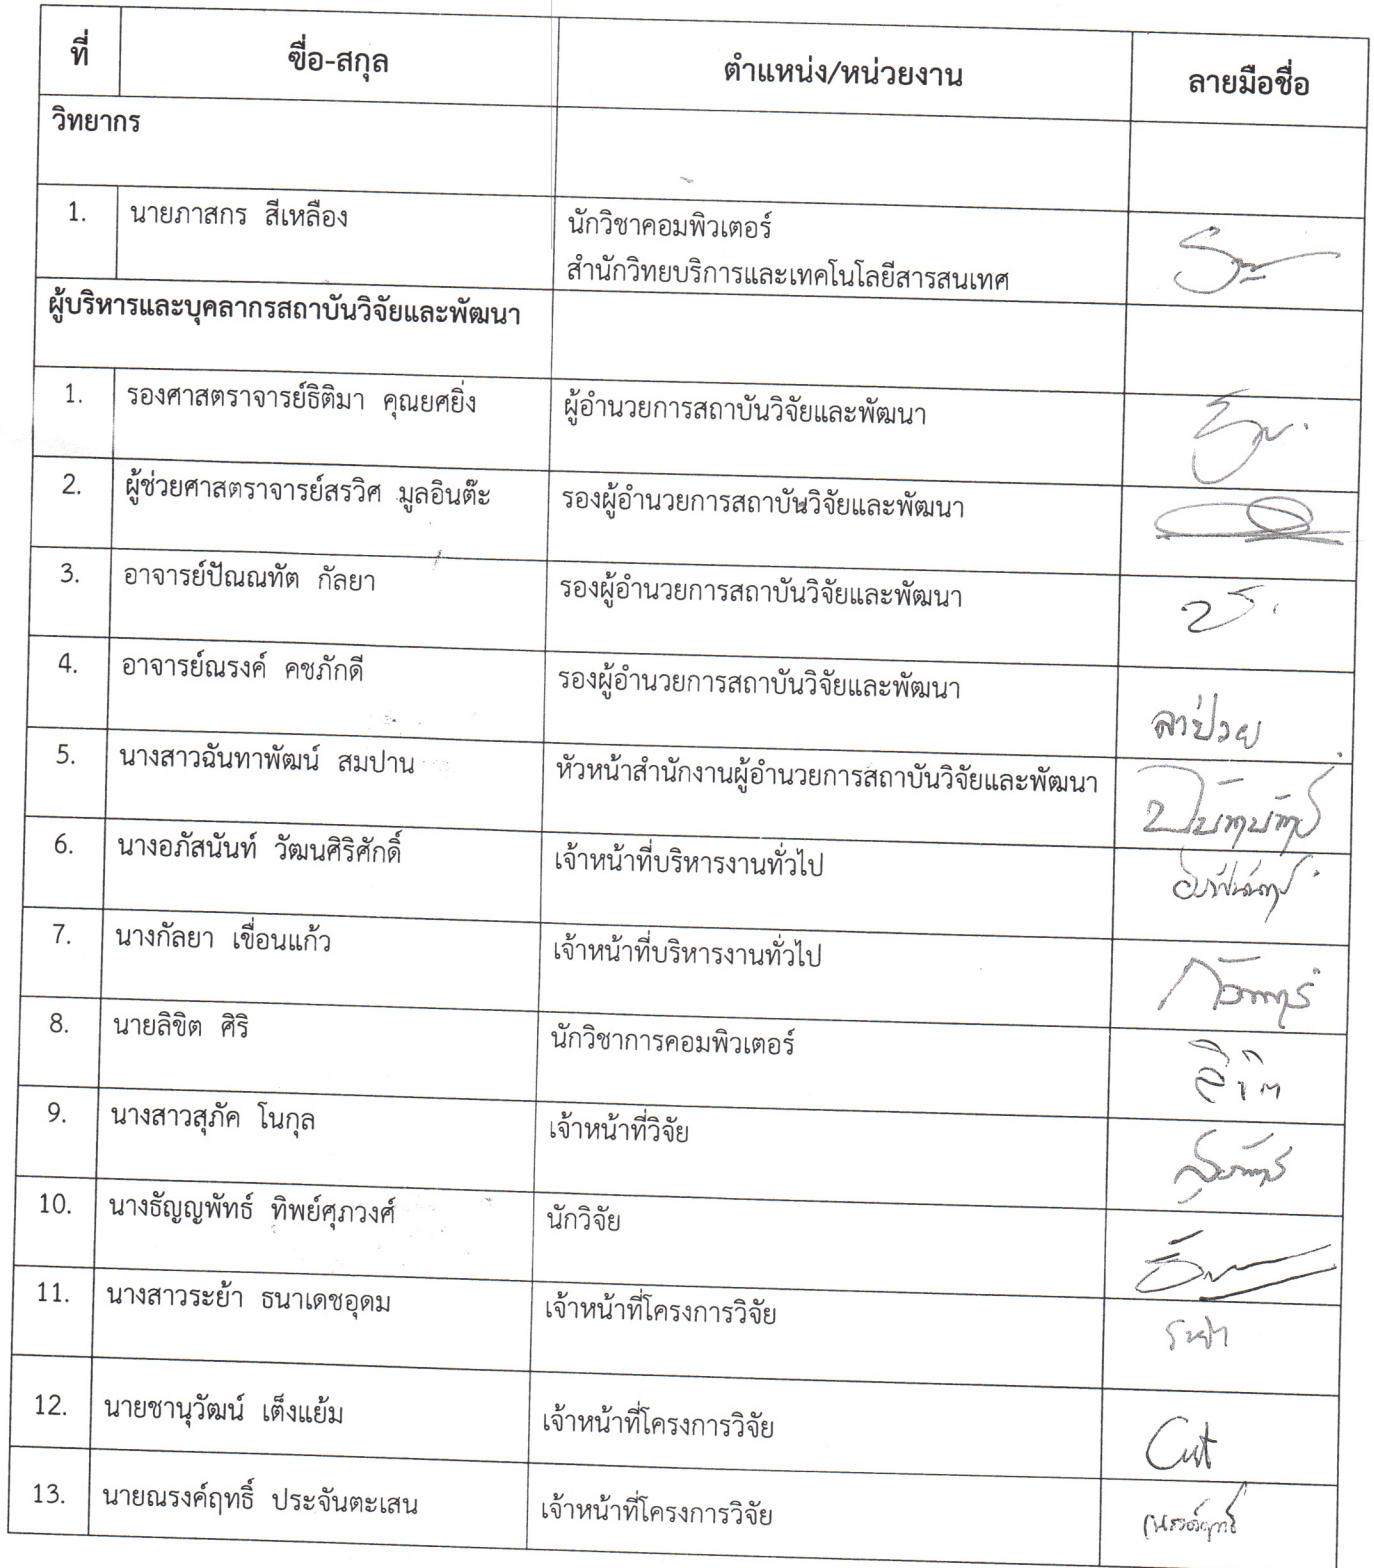 ที่ ชื่อ-สกุล ตำแหน่ง/หน่วยงาน ลายมือชื่อ
วิทยากร
1. นายภาสกร สีเหลือง นักวิชาคอมพิวเตอร์
สำนักวิทยบริการและเทคโนโลยีสารสนเทศ
ผู้บริหารและบุคลากรสถาบันวิจัยและพัฒนา
1. รองศาสตราจารย์ธิติมา คุณยศยิ่ง ผู้อำนวยการสถาบันวิจัยและพัฒนา
2. ผู้ช่วยศาสตราจารย์สรวิศ มูลอินต๊ะ รองผู้อำนวยการสถาบันวิจัยและพัฒนา
3. อาจารย์ปัณณทัต กัลยา รองผู้อำนวยการสถาบันวิจัยและพัฒนา
4. อาจารย์ณรงค์ คชภักดี รองผู้อำนวยการสถาบันวิจัยและพัฒนา ลาป่วย
5. นางสาวฉันทาพัฒน์ สมปาน หัวหน้าสำนักงานผู้อำนวยการสถาบันวิจัยและพัฒนา
6. นางอภัสนันท์ วัฒนศิริศักดิ์ เจ้าหน้าที่บริหารงานทั่วไป
7. นางกัลยา เขื่อนแก้ว เจ้าหน้าที่บริหารงานทั่วไป
8. นายลิขิต ศิริ นักวิชาการคอมพิวเตอร์ ลิขิต
9. นางสาวสุภัค โนกุล เจ้าหน้าที่วิจัย
10. นางธัญญพัทธ์ ทิพย์ศุภวงศ์ นักวิจัย
11. นางสาวระย้า ธนาเดชอุดม เจ้าหน้าที่โครงการวิจัย ระย้า
12. นายชานุวัฒน์ เต็งแย้ม เจ้าหน้าที่โครงการวิจัย
13. นายณรงค์ฤทธิ์ ประจันตะเสน เจ้าหน้าที่โครงการวิจัย ณรงค์ฤทธิ์